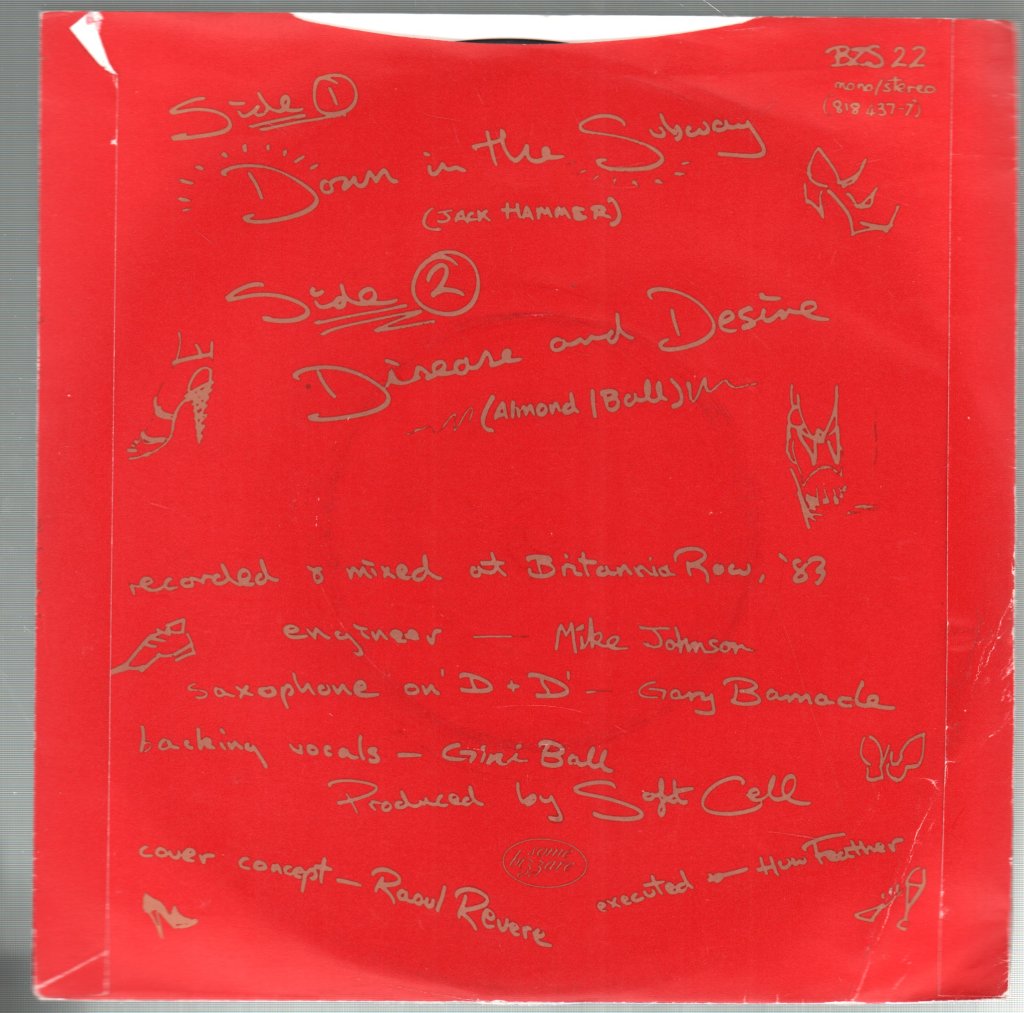 BZS 22
mono/stereo
(818 437-7)
Side 1
Down in the Subway
(JACK HAMMER)
Side 2
Disease and Desire
(Almond / Ball)
recorded & mixed at Britannia Row, '83
engineer — Mike Johnson
saxophone on 'D + D' — Gary Barnacle
backing vocals — Gini Ball
Produced by Soft Cell
some bizzare
cover concept — Raoul Revere
executed — Huw Feather